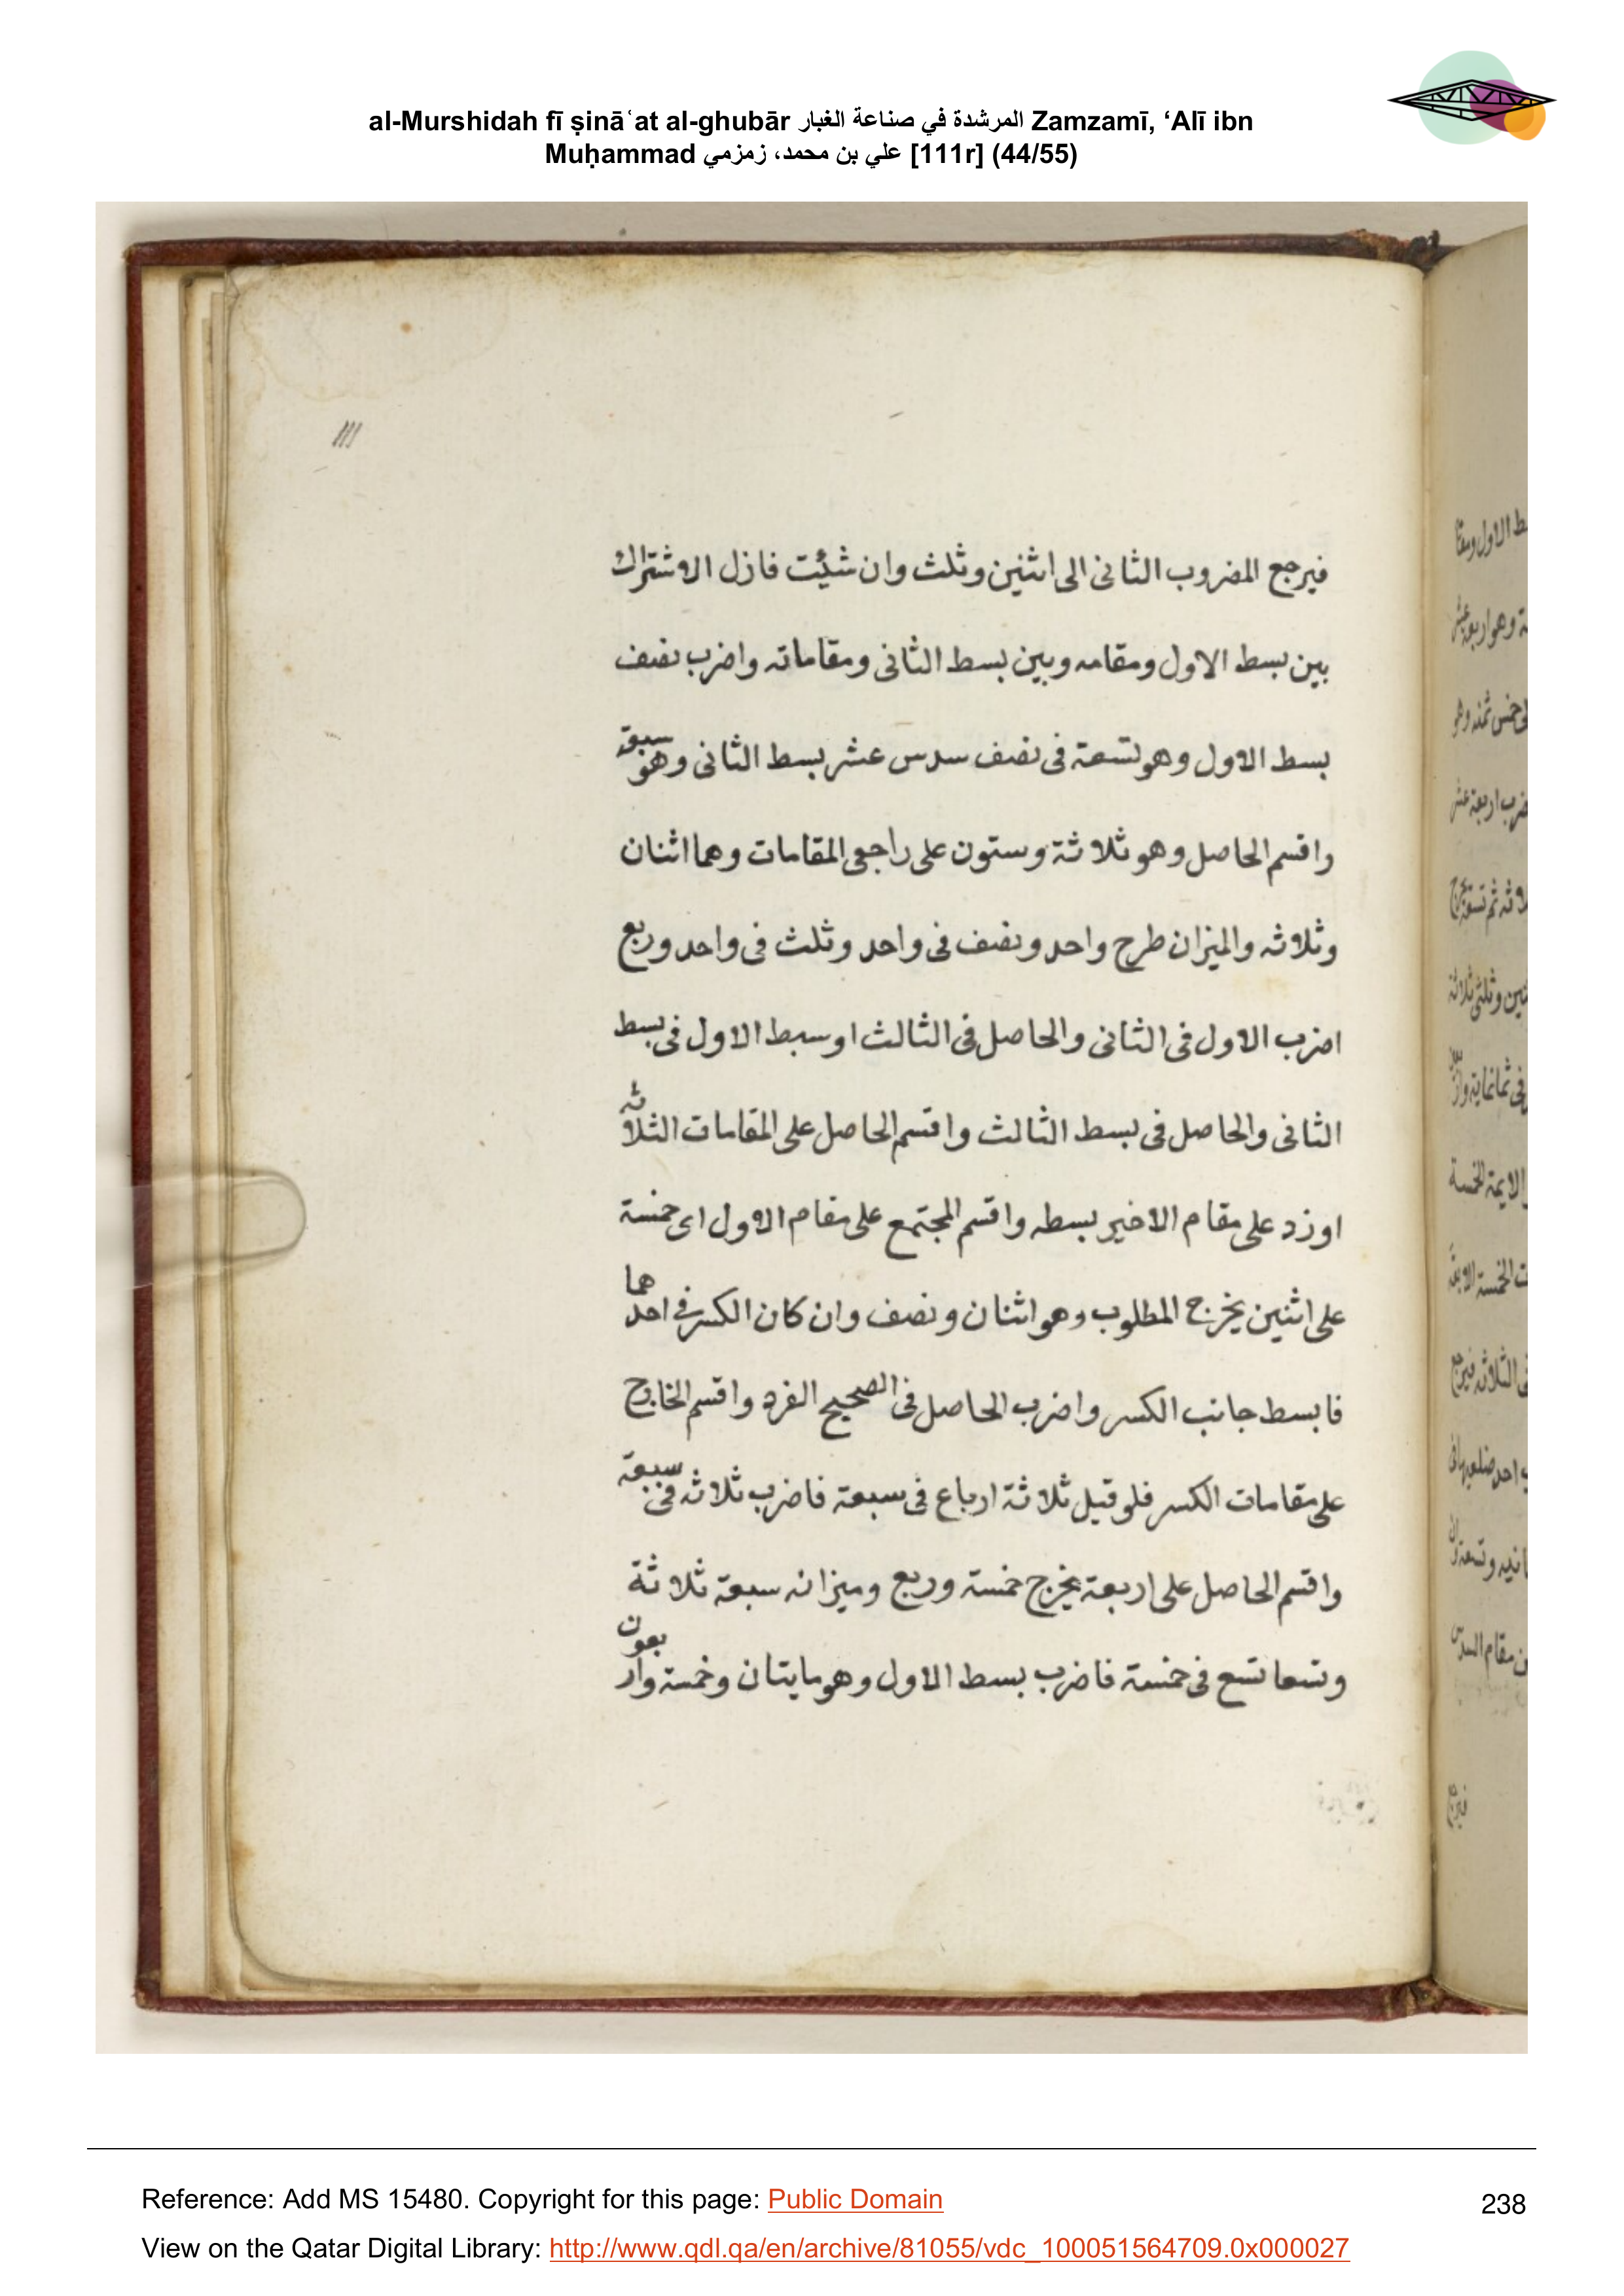 al-Murshidah fī ṣināʿat al-ghubār المرشدة في صناعة الغبار Zamzamī, ‘Alī ibn
Muḥammad علي بن محمد، زمزمي [111r] (44/55)
111
فيرجع المضروب الثانى الى اثنين وثلث وان شئت فازل الاشتراك
بين بسط الاول ومقامه وبين بسط الثانى ومقاماته واضرب نصف
بسط الاول وهو تسعة فى نصف سدس عشر بسط الثانى وهو سبعة
واقسم الحاصل وهو ثلاثة وستون على راجعى المقامات وهما اثنان
وثلاثه والميزان طرح واحد ونصف فى واحد وثلث فى واحد وربع
اضرب الاول فى الثانى والحاصل فى الثالث او سبط الاول فى بسط
الثانى والحاصل فى بسط الثالث واقسم الحاصل على المقامات الثلاثه
او زد على مقام الاخير بسطه واقسم المجتمع على مقام الاول اى خمسة
على اثنين يخرج المطلوب وهو اثنان ونصف وان كان الكسر فى احدهما
فابسط جانب الكسر واضرب الحاصل فى الصحيح الفرد واقسم الخارج
على مقامات الكسر فلو قيل ثلاثة ارباع فى سبعة فاضرب ثلاثه فى سبعة
واقسم الحاصل على اربعة يخرج خمسة وربع وميزانه سبعة ثلاثة
وتسعا تسع فى خمسة فاضرب بسط الاول وهو مايتان وخمسة واربعون
Reference: Add MS 15480. Copyright for this page: Public Domain
238
View on the Qatar Digital Library: http://www.qdl.qa/en/archive/81055/vdc_100051564709.0x000027